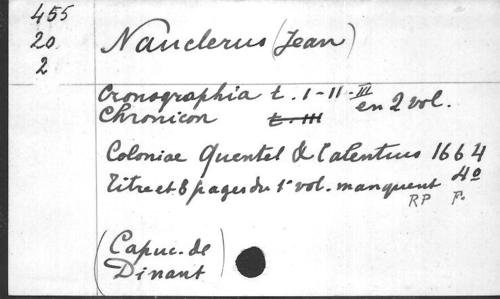 455
20
2
Nauclerus (Jean)
Cronographia t. I-II-III en 2 vol.
Chronicon t. III
Coloniae Quentel & Calentius 1664
Titre et 8 pages du 1r vol. manquent 4º
RP F.
(Capuc. de
Dinant)